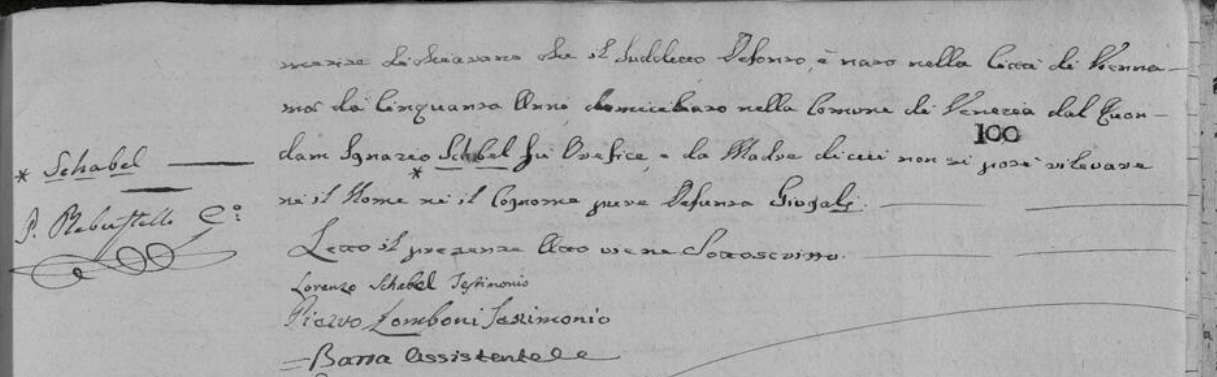 mente dichiarano che il suddetto Defonto, è nato nella Città di Vienna
ma da Cinquanta Anni domiciliato nella Comune di Venezia dal Quon-
100
dam Ignazio Schbel fu Orefice e da Madre di cui non si potè rilevare
* Schabel
*
nè il Nome nè il Cognome pure Defunta Giugali.
P. Rebustello C:°
Letto il presente Atto viene Sottoscritto.
Lorenzo Schabel Testimonio
Pietro Lomboni Testimonio
Barra Assistente